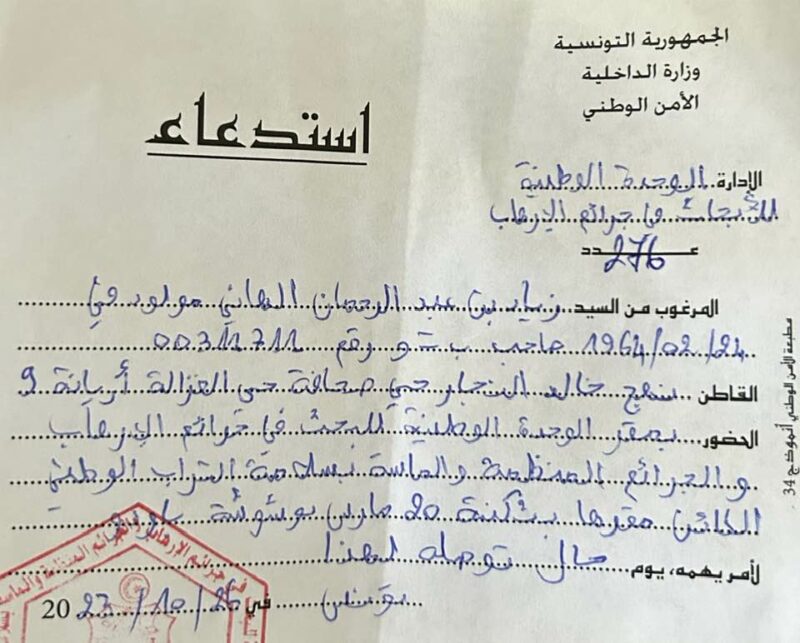 الجمهورية التونسية
وزارة الداخلية
الأمن الوطني
استدعاء
الإدارة الوحدة الوطنية
للأبحاث في جرائم الإرهاب
عدد 276
المرغوب من السيد زياد بن عبد الرحمان الهاني مولود في
1964/02/24 صاحب ب ت و رقم 00311711
القاطن بنهج خالد النجار حي صحافة حي الغزالة أريانة 9
الحضور بمقر الوحدة الوطنية للبحث في جرائم الإرهاب
و الجرائم المنظمة والماسة بسلامة التراب الوطني
الكائن مقرها بثكنة 20 مارس بوشوشة باردو
لأمر يهمه، يوم حال توصله بهذا
تونس في 26/10/2023
مطبعة الأمن الوطني أنموذج 34